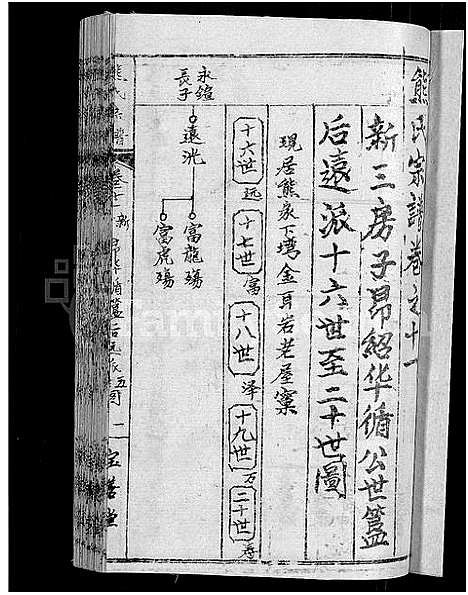 熊氏宗譜卷之十一
新三房子昂紹华循公世簋
后遠派十六世至二十世圖
現居熊家下塆金耳岩老屋窠
十六世 远 十七世 富 十八世 泽 十九世 万 二十世
永鎧
長子
遠洸
富龍殤
富虎殤
熊氏宗譜
卷十一 新
二 宝善堂